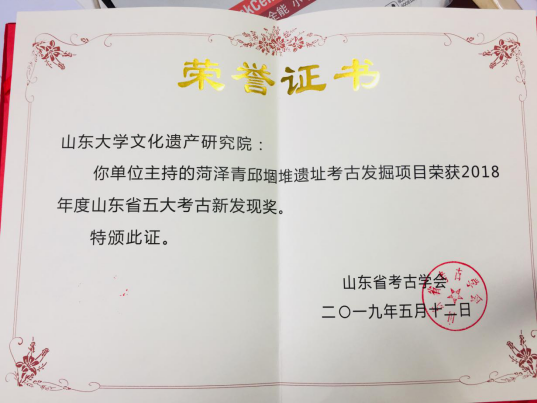 荣誉证书
山东大学文化遗产研究院：
你单位主持的菏泽青邱堌堆遗址考古发掘项目荣获2018
年度山东省五大考古新发现奖。
特颁此证。
山东省考古学会
二〇一九年五月十二日